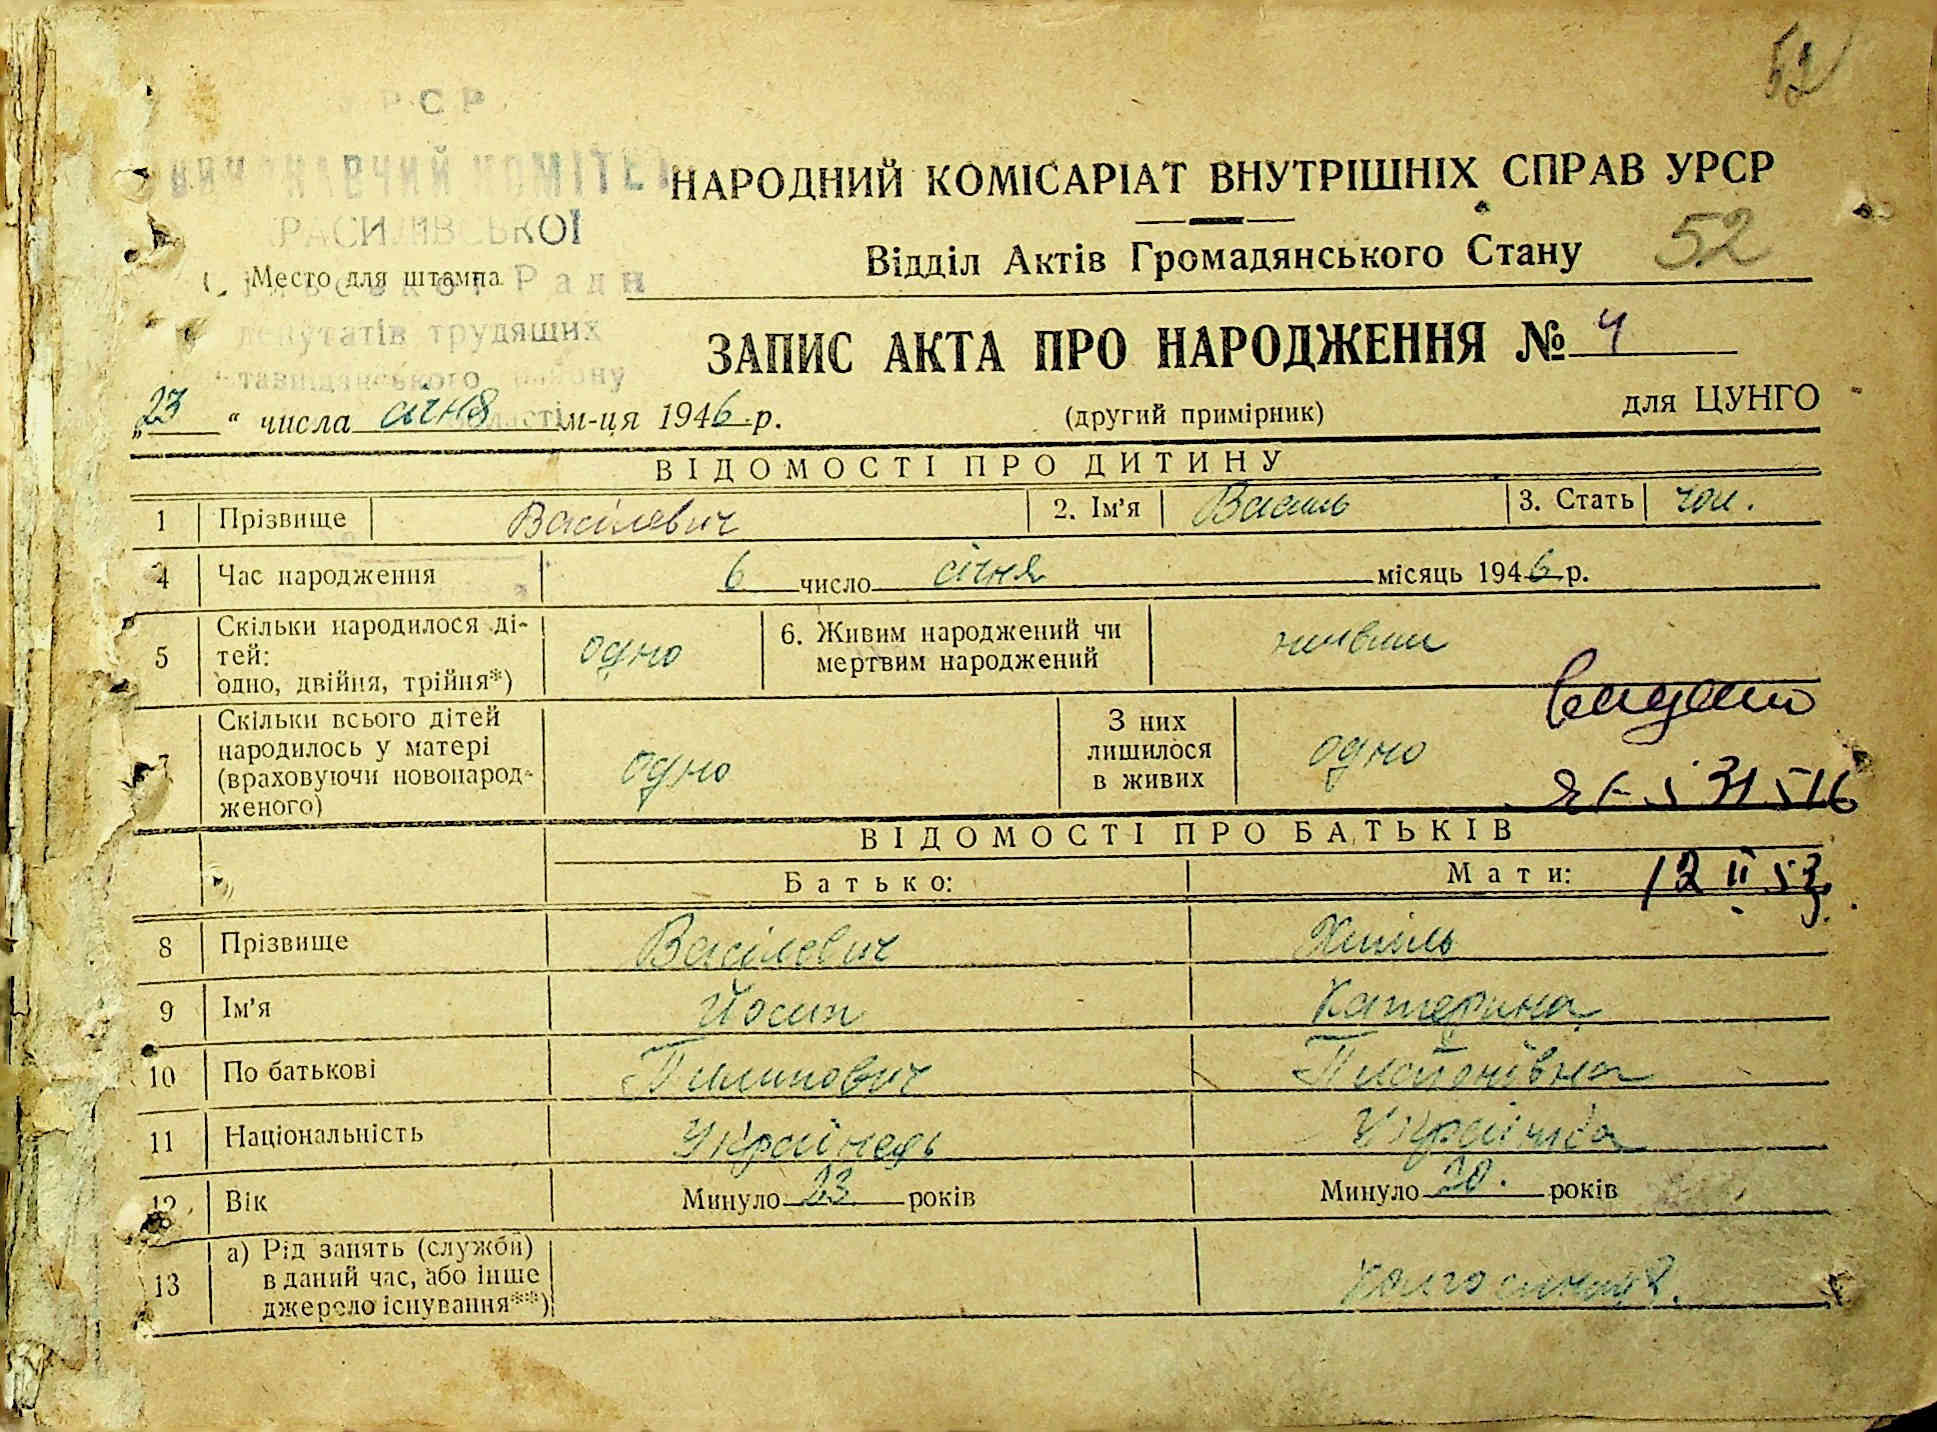 52
УРСР
ВИКОНАВЧИЙ КОМІТЕТ
НАРОДНИЙ КОМІСАРІАТ ВНУТРІШНІХ СПРАВ УРСР
Відділ Актів Громадянського Стану 52
Место для штампа
Ради
депутатів трудящих
ЗАПИС АКТА ПРО НАРОДЖЕННЯ № 4
„23“ числа січня м-ця 1946 р.
(другий примірник)
для ЦУНГО
ВІДОМОСТІ ПРО ДИТИНУ
1 Прізвище Василевич 2. Ім'я Василь 3. Стать чол.
4 Час народження 6 число січня місяць 1946 р.
5 Скільки народилося ді-
тей:
одно, двійня, трійня*) одно 6. Живим народжений чи
мертвим народжений живим
7 Скільки всього дітей
народилось у матері
(враховуючи новонарод-
женого) одно З них
лишилося
в живих одно
видано
531516
12 II 53
ВІДОМОСТІ ПРО БАТЬКІВ
Батько: Мати:
8 Прізвище Василевич
9 Ім'я Йосип Катерина
10 По батькові Пилипович
11 Національність Українець Українка
12 Вік Минуло 23 років Минуло 20. років
13 а) Рід занять (служби)
в даний час, або інше
джерело існування**) колгоспниця.